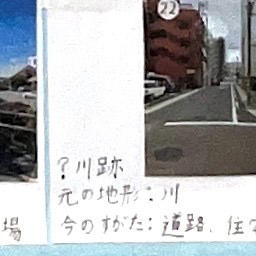 22
?川跡
元の地形:川
今のすがた:道路、住
場